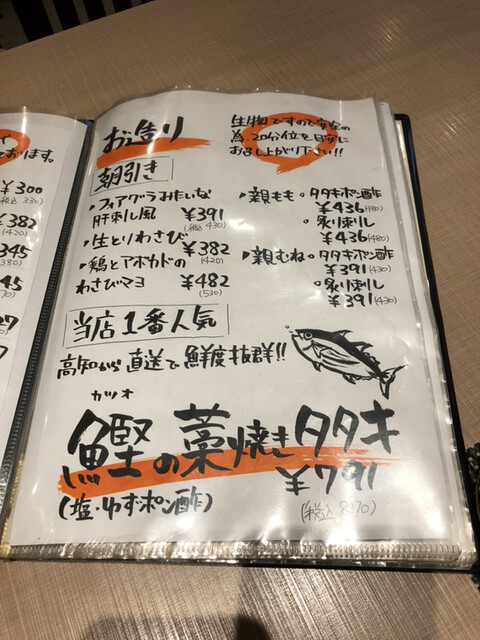 おります。
¥300
(税込 330)
382
(420)
345
(380)
45
お造り
生物ですので安全の
為、20分位を目安に
お召し上がり下さい!!
朝引き
・フォアグラみたいな
肝刺し風 ¥391
(税込 430)
・生とりわさび ¥382
(420)
・鶏とアボカドの
わさびマヨ ¥482
(530)
・親もも。タタキポン酢
¥436(480)
。炙り刺し
¥436(480)
・親むね。タタキポン酢
¥391(430)
。炙り刺し
¥391(430)
当店1番人気
高知から直送で鮮度抜群!!
カツオ
鰹の藁焼きタタキ
¥791
(塩・ゆずポン酢)
(税込 870)